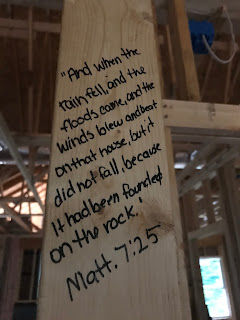 "And when the
rain fell, and the
floods came, and the
winds blew and beat
on that house, but it
did not fall, because
it had been founded
on the rock."
Matt. 7:25